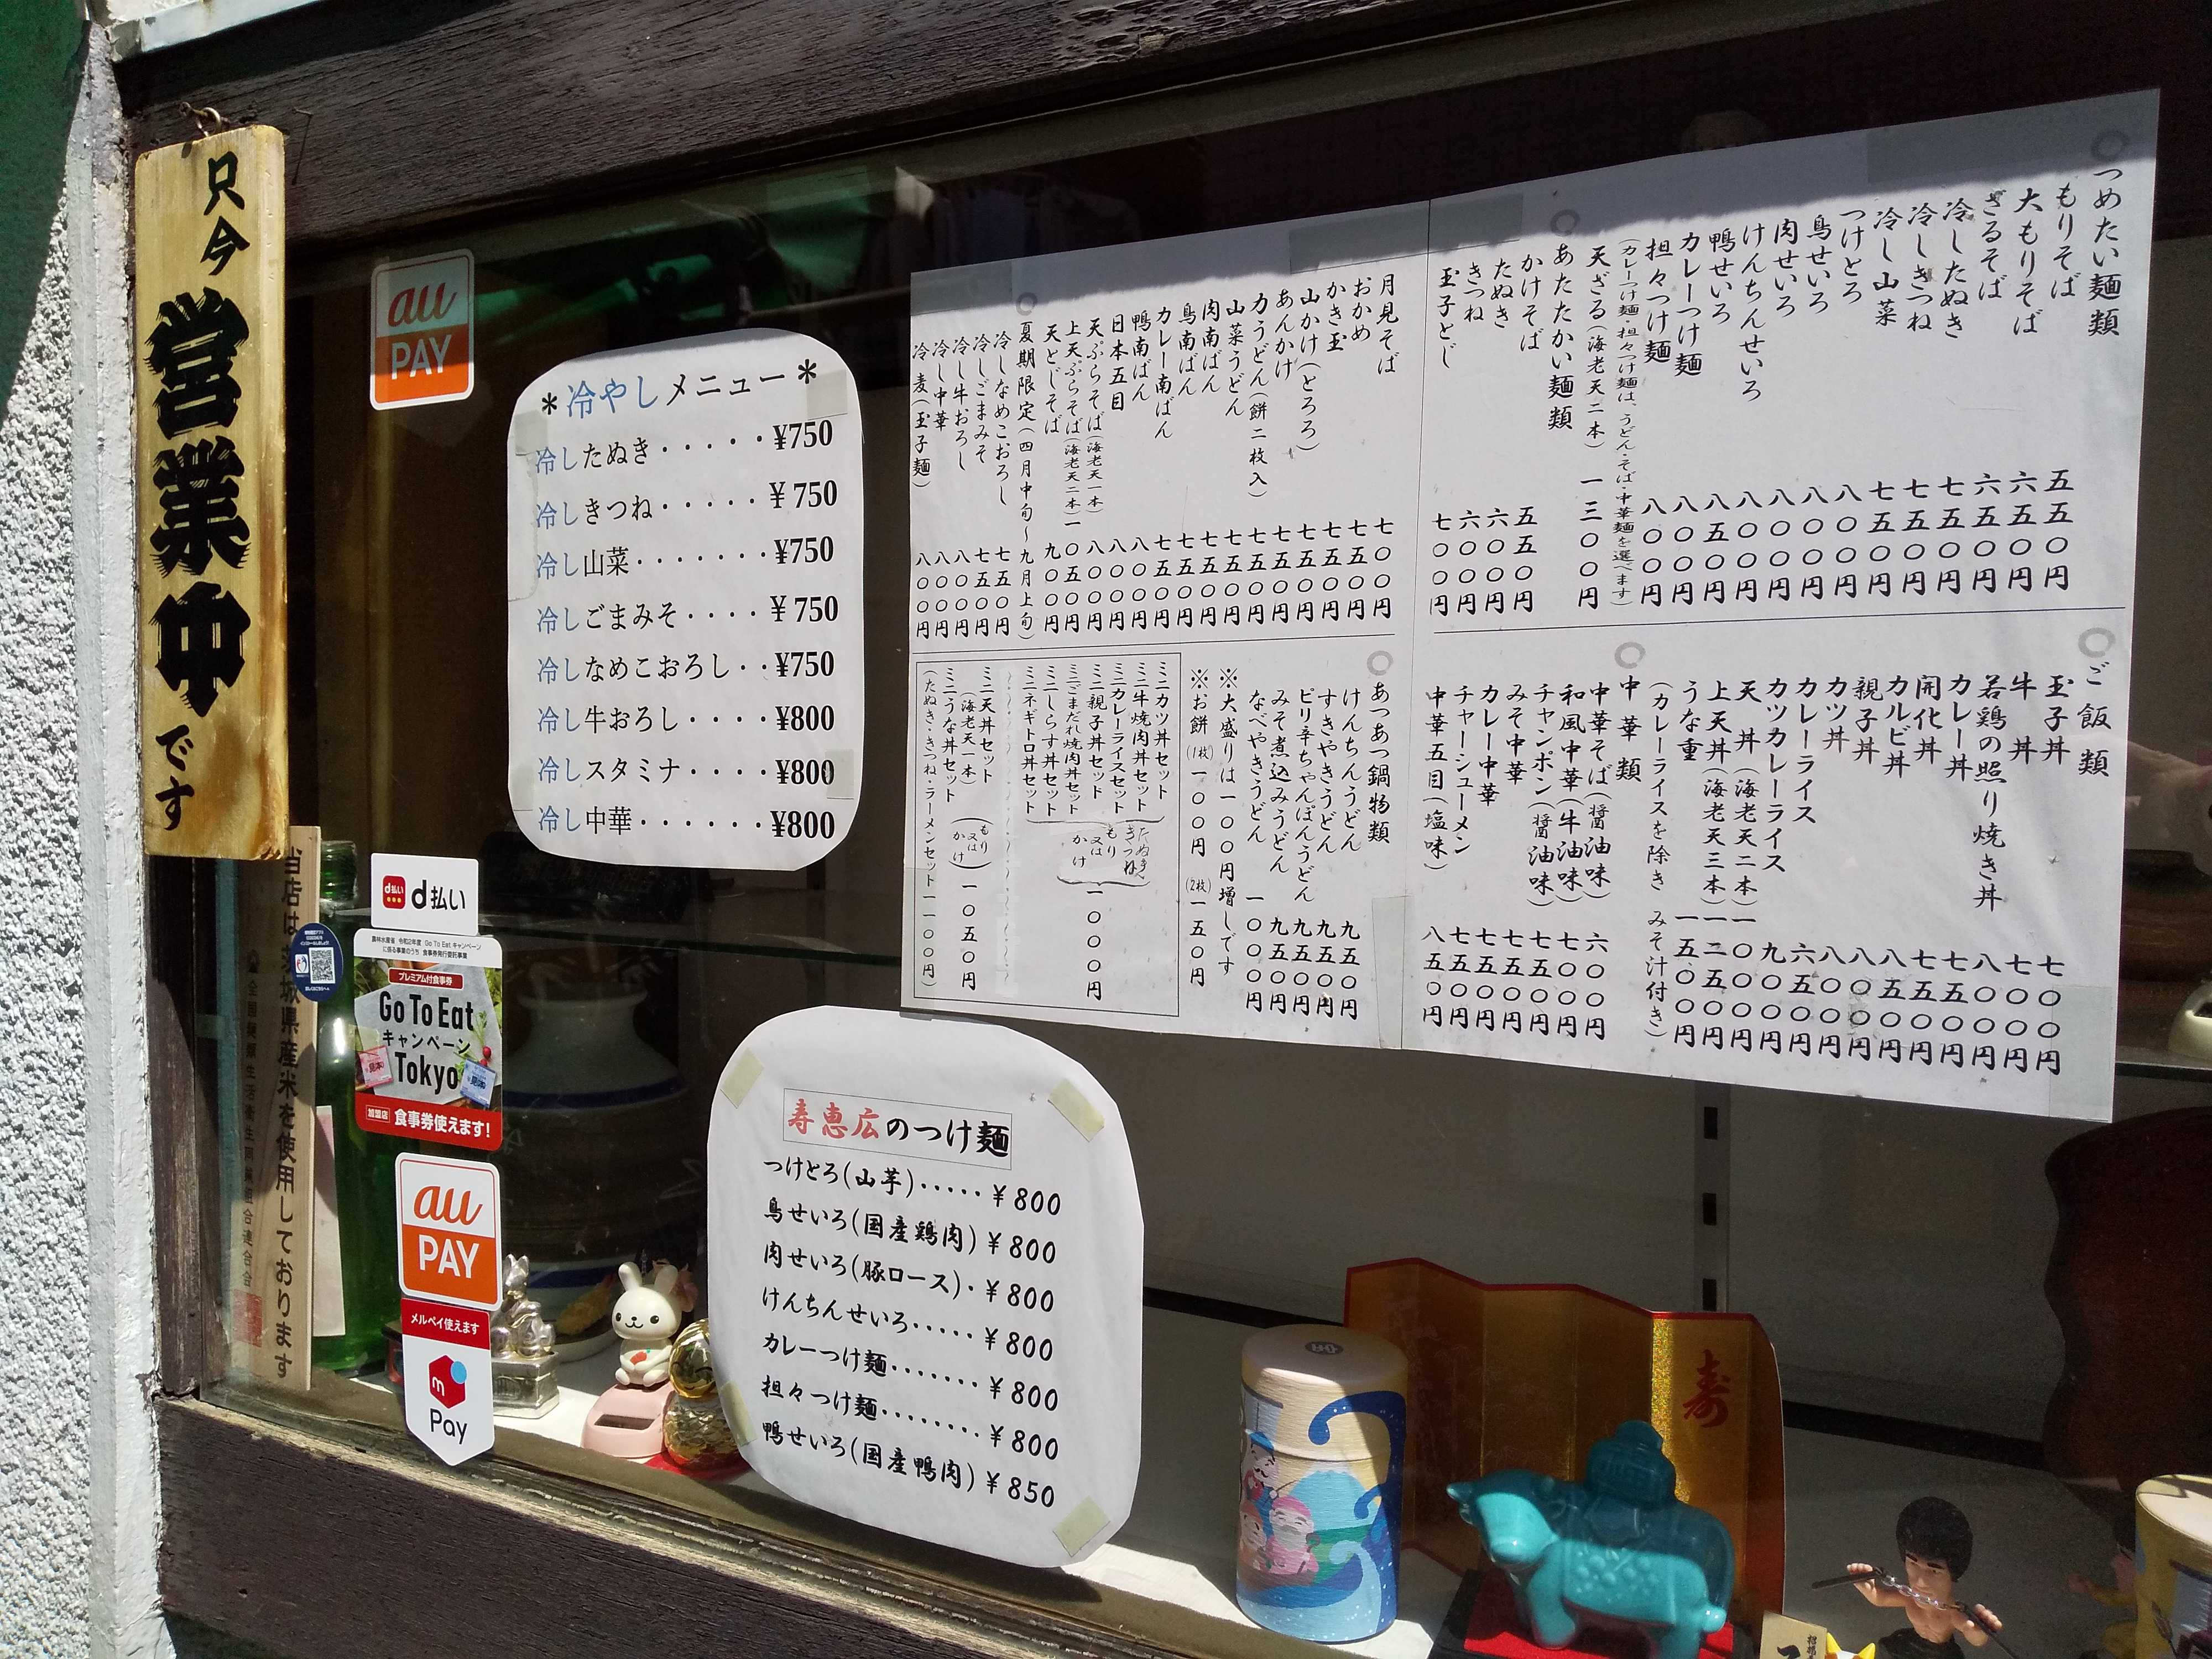 只今営業中です
au
PAY
＊冷やしメニュー＊
冷したぬき・・・・・¥750
冷しきつね・・・・・・¥750
冷し山菜・・・・・・・¥750
冷しごまみそ・・・・¥750
冷しなめこおろし・・¥750
冷し牛おろし・・・・¥800
冷しスタミナ・・・・¥800
冷し中華・・・・・・¥800
○つめたい麺類
もりそば 五五〇円
大もりそば 六五〇円
ざるそば 六〇〇円
冷したぬき 七五〇円
冷しきつね 七五〇円
冷し山菜 七五〇円
つけとろ 八〇〇円
鳥せいろ 八〇〇円
肉せいろ 八〇〇円
けんちんせいろ 八〇〇円
鴨せいろ 八五〇円
カレーつけ麺 八〇〇円
担々つけ麺 八〇〇円
(カレーつけ麺・担々つけ麺は、うどん・そば・中華麺を選べます)
天ざる(海老天二本) 一三〇〇円
○あたたかい麺類
かけそば 五五〇円
たぬき 六〇〇円
きつね 六〇〇円
玉子とじ 七〇〇円
月見そば 七〇〇円
おかめ 七五〇円
かき玉 七五〇円
山かけ(とろろ) 七五〇円
あんかけ 七五〇円
力うどん(餅二枚入) 七五〇円
山菜うどん 七五〇円
肉南ばん 七五〇円
鳥南ばん 七五〇円
カレー南ばん 七五〇円
鴨南ばん 八〇〇円
日本五目 八〇〇円
天ぷらそば(海老天一本) 八〇〇円
上天ぷらそば(海老天二本) 一〇五〇円
天とじそば 九〇〇円
○夏期限定(四月中旬〜九月上旬)
冷しなめこおろし 七五〇円
冷しごまみそ 七五〇円
冷し牛おろし 八〇〇円
冷し中華 八〇〇円
冷し麦(玉子麺) 八〇〇円
○ご飯類
玉子丼 七〇〇円
牛丼 七〇〇円
若鶏の照り焼き丼 八〇〇円
カレー丼 七五〇円
開化丼 七五〇円
カルビ丼 八五〇円
親子丼 八〇〇円
カツ丼 八〇〇円
カレーライス 六五〇円
カツカレーライス 九〇〇円
天丼(海老天二本) 一〇〇〇円
上天丼(海老天三本) 一二五〇円
うな重 一五〇〇円
(カレーライスを除き みそ汁付き)
○中華類
中華そば(醤油味) 六〇〇円
和風中華(牛油味) 七〇〇円
チャンポン(醤油味) 七五〇円
みそ中華 七五〇円
カレー中華 七五〇円
チャーシューメン 七五〇円
中華五目(塩味) 八五〇円
○あつあつ鍋物類
けんちんうどん 九五〇円
すきやきうどん 九五〇円
ピリ辛ちゃんぽんうどん 九五〇円
みそ煮込みうどん 九五〇円
なべやきうどん 一〇〇〇円
※大盛りは一〇〇円増しです
※お餅(1枚)一〇〇円 (2枚)一五〇円
ミニカツ丼セット
ミニ牛焼肉丼セット
ミニカレーライスセット
ミニ親子丼セット
ミニごまだれ焼肉丼セット
ミニしらす丼セット
ミニネギトロ丼セット
(たぬき きつね もり又はかけ) 一〇〇〇円
ミニ天丼セット
(海老天一本)
ミニうな丼セット
(もり又はかけ) 一〇五〇円
(たぬき・きつね・ラーメンセット一一〇〇円)
d払い
d払い
農林水産省 令和2年度 Go To Eat キャンペーン
に係る事業のうち 食事券発行委託事業
プレミアム付食事券
Go To Eat
キャンペーン
Tokyo
見本
見本
加盟店 食事券使えます!
当店は茨城県産米を使用しております
全国麺類生活衛生同業組合連合会
au
PAY
メルペイ使えます
m
Pay
寿恵広のつけ麺
つけとろ(山芋)・・・・・¥800
鳥せいろ(国産鶏肉)¥800
肉せいろ(豚ロース)・¥800
けんちんせいろ・・・・・¥800
カレーつけ麺・・・・・・・¥800
担々つけ麺・・・・・・・・¥800
鴨せいろ(国産鴨肉)¥850
寿